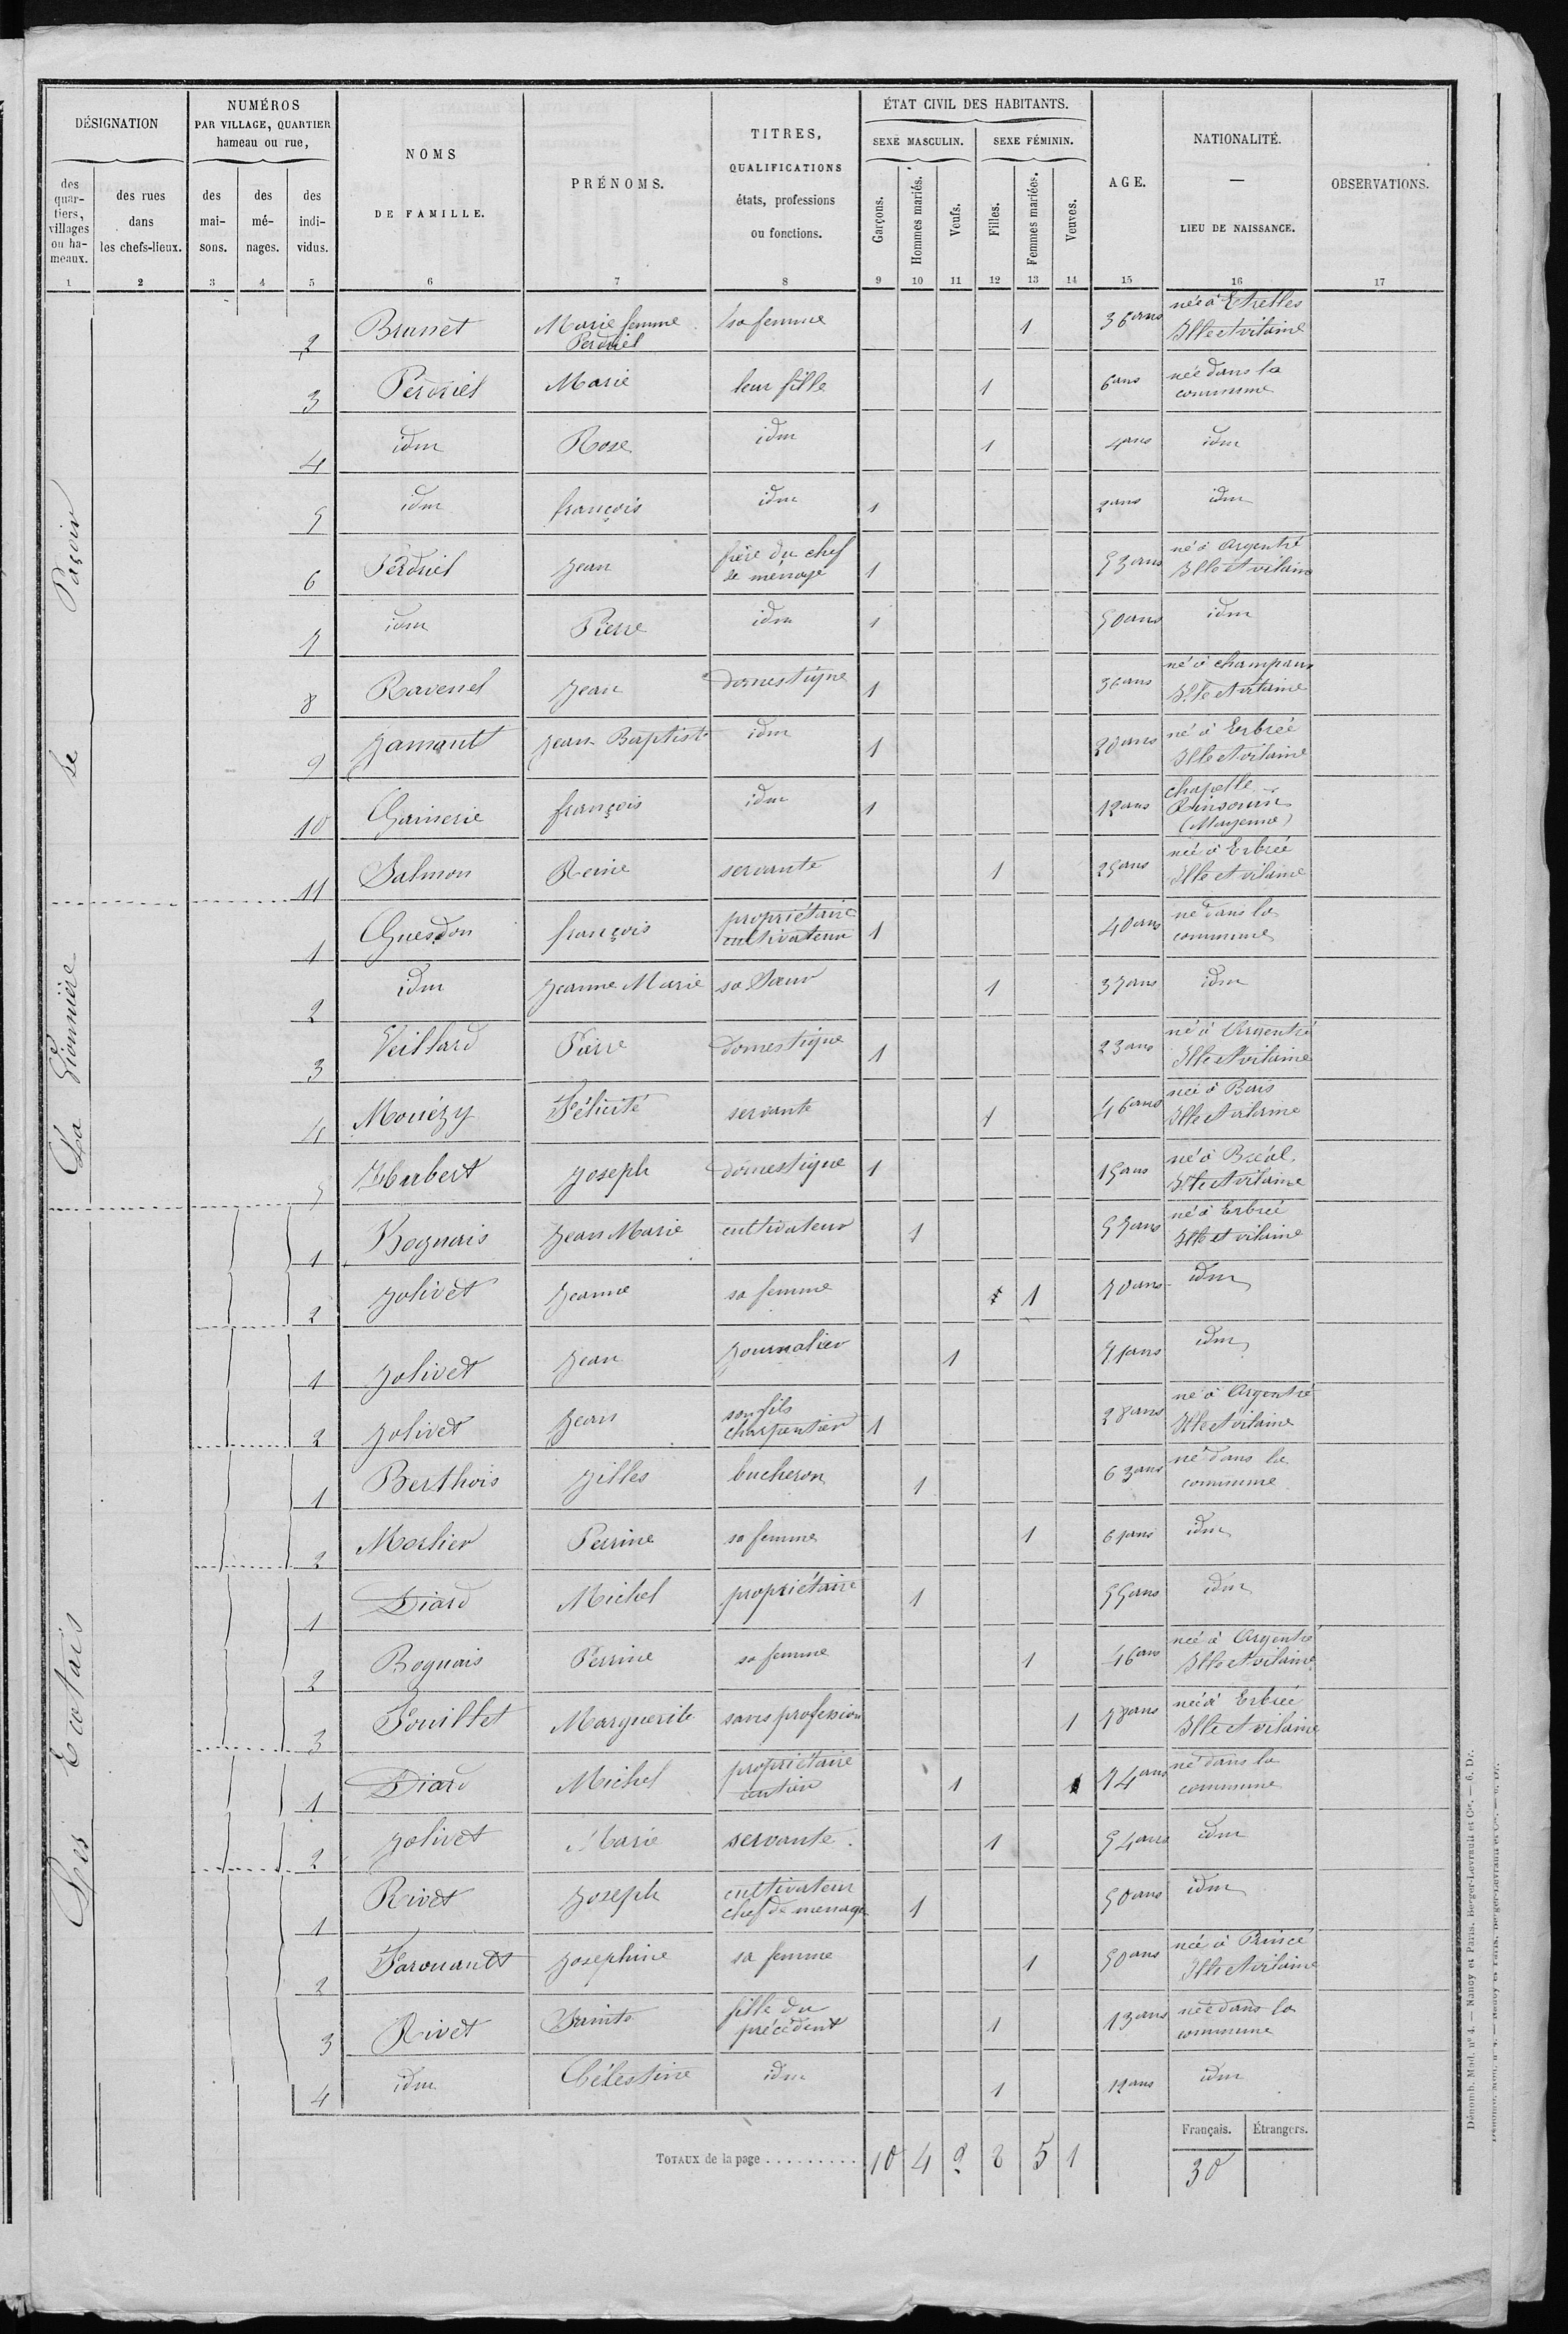 DÉSIGNATION
NUMÉROS
PAR VILLAGE, QUARTIER
hameau ou rue,
NOMS
DE FAMILLE.
PRÉNOMS.
TITRES,
QUALIFICATIONS
états, professions
ou fonctions.
ÉTAT CIVIL DES HABITANTS.
SEXE MASCULIN.
SEXE FÉMININ.
AGE.
NATIONALITÉ.
—
LIEU DE NAISSANCE.
OBSERVATIONS.
des
quar-
tiers,
villages
ou ha-
meaux.
des rues
dans
les chefs-lieux.
des
mai-
sons.
des
mé-
nages.
des
indi-
vidus.
Garçons.
Hommes mariés.
Veufs.
Filles.
Femmes mariées.
Veuves.
1 2 3 4 5 6 7 8 9 10 11 12 13 14 15 16 17
le Paçoir
2 Brunet Marie femme Perdriel sa femme 1 36 ans née à Etrelles Ille et vilaine
3 Perdriel Marie leur fille 1 6 ans née dans la commune
4 idm Rose idm 1 4 ans idm
5 idm françois idm 1 2 ans idm
6 Perdriel Jean frère du chef de ménage 1 53 ans né à Argentré Ille et vilaine
7 idm Pierre idm 1 50 ans idm
8 Ravenel Jean domestique 1 36 ans né à champeaux Ille et vilaine
9 Jamault Jean Baptiste idm 1 20 ans né à Erbrée Ille et vilaine
10 françois idm 1 12 ans chapelle Rinsouin (Mayenne)
11 Salmon Reine servante 1 25 ans née à Erbrée Ille et vilaine
La Gionnière
1 Guesdon françois propriétaire cultivateur 1 40 ans né dans la commune
2 idm Jeanne Marie sa Soeur 1 37 ans idm
3 Veillard Pierre domestique 1 23 ans né à Argentré Ille et vilaine
4 Mouézy Félicité servante 1 46 ans née à Bais Ille et vilaine
5 Hubert Joseph domestique 1 15 ans né à Bréal Ille et vilaine
Les Ecotais
1 Bognais Jean Marie cultivateur 1 57 ans né à Erbrée Ille et vilaine
2 Jolivet Jeanne sa femme 1 70 ans idm
1 Jolivet Jean Journalier 1 71 ans idm
2 Jolivet Jean son fils charpentier 1 28 ans né à Argentré Ille et vilaine
1 Berthois Gilles bucheron 1 63 ans né dans la commune
2 Morlier Perrine sa femme 1 61 ans idm
1 Diard Michel propriétaire 1 55 ans idm
2 Bognais Perrine sa femme 1 46 ans née à Argentré Ille et vilaine
3 Fouillet Marguerite sans profession 1 78 ans née à Erbrée Ille et vilaine
1 Diard Michel propriétaire rentier 1 74 ans né dans la commune
2 Jolivet Marie servante. 1 54 ans idm
1 Rivet Joseph cultivateur chef de menage 1 50 ans idm
2 Farouault Josephine sa femme 1 50 ans née à Princé Ille et vilaine
3 Rivet Sainte fille du précédent 1 13 ans née dans la commune
4 idm Célestine idm 1 12 ans idm
TOTAUX de la page ......... 10 4 2 8 5 1
Français. Étrangers.
30
Dénomb. Mod. nº 4. — Nancy et Paris. Berger-Levrault et Cie. — 6. Dr.